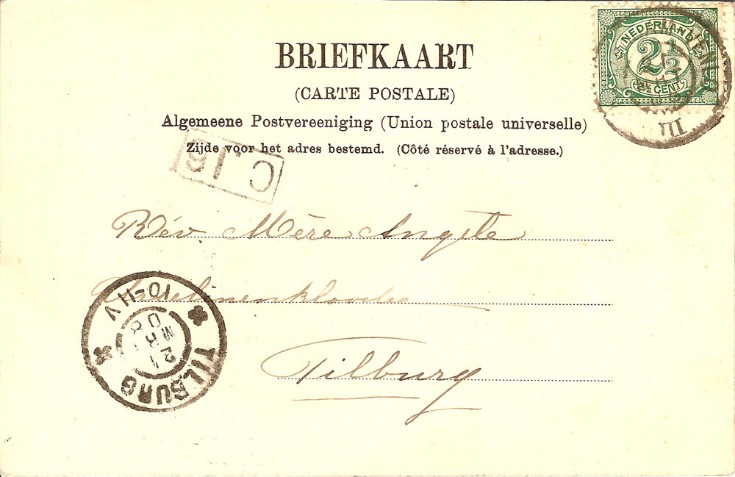 BRIEFKAART
(CARTE POSTALE)
Algemeene Postvereeniging (Union postale universelle)
Zijde voor het adres bestemd. (Côté réservé à l'adresse.)
NEDERLAND
2½
2½ CENT
III
C.18
Rév Mère Angèle
Tilburg
TILBURG
21 MRT 03
10-11V